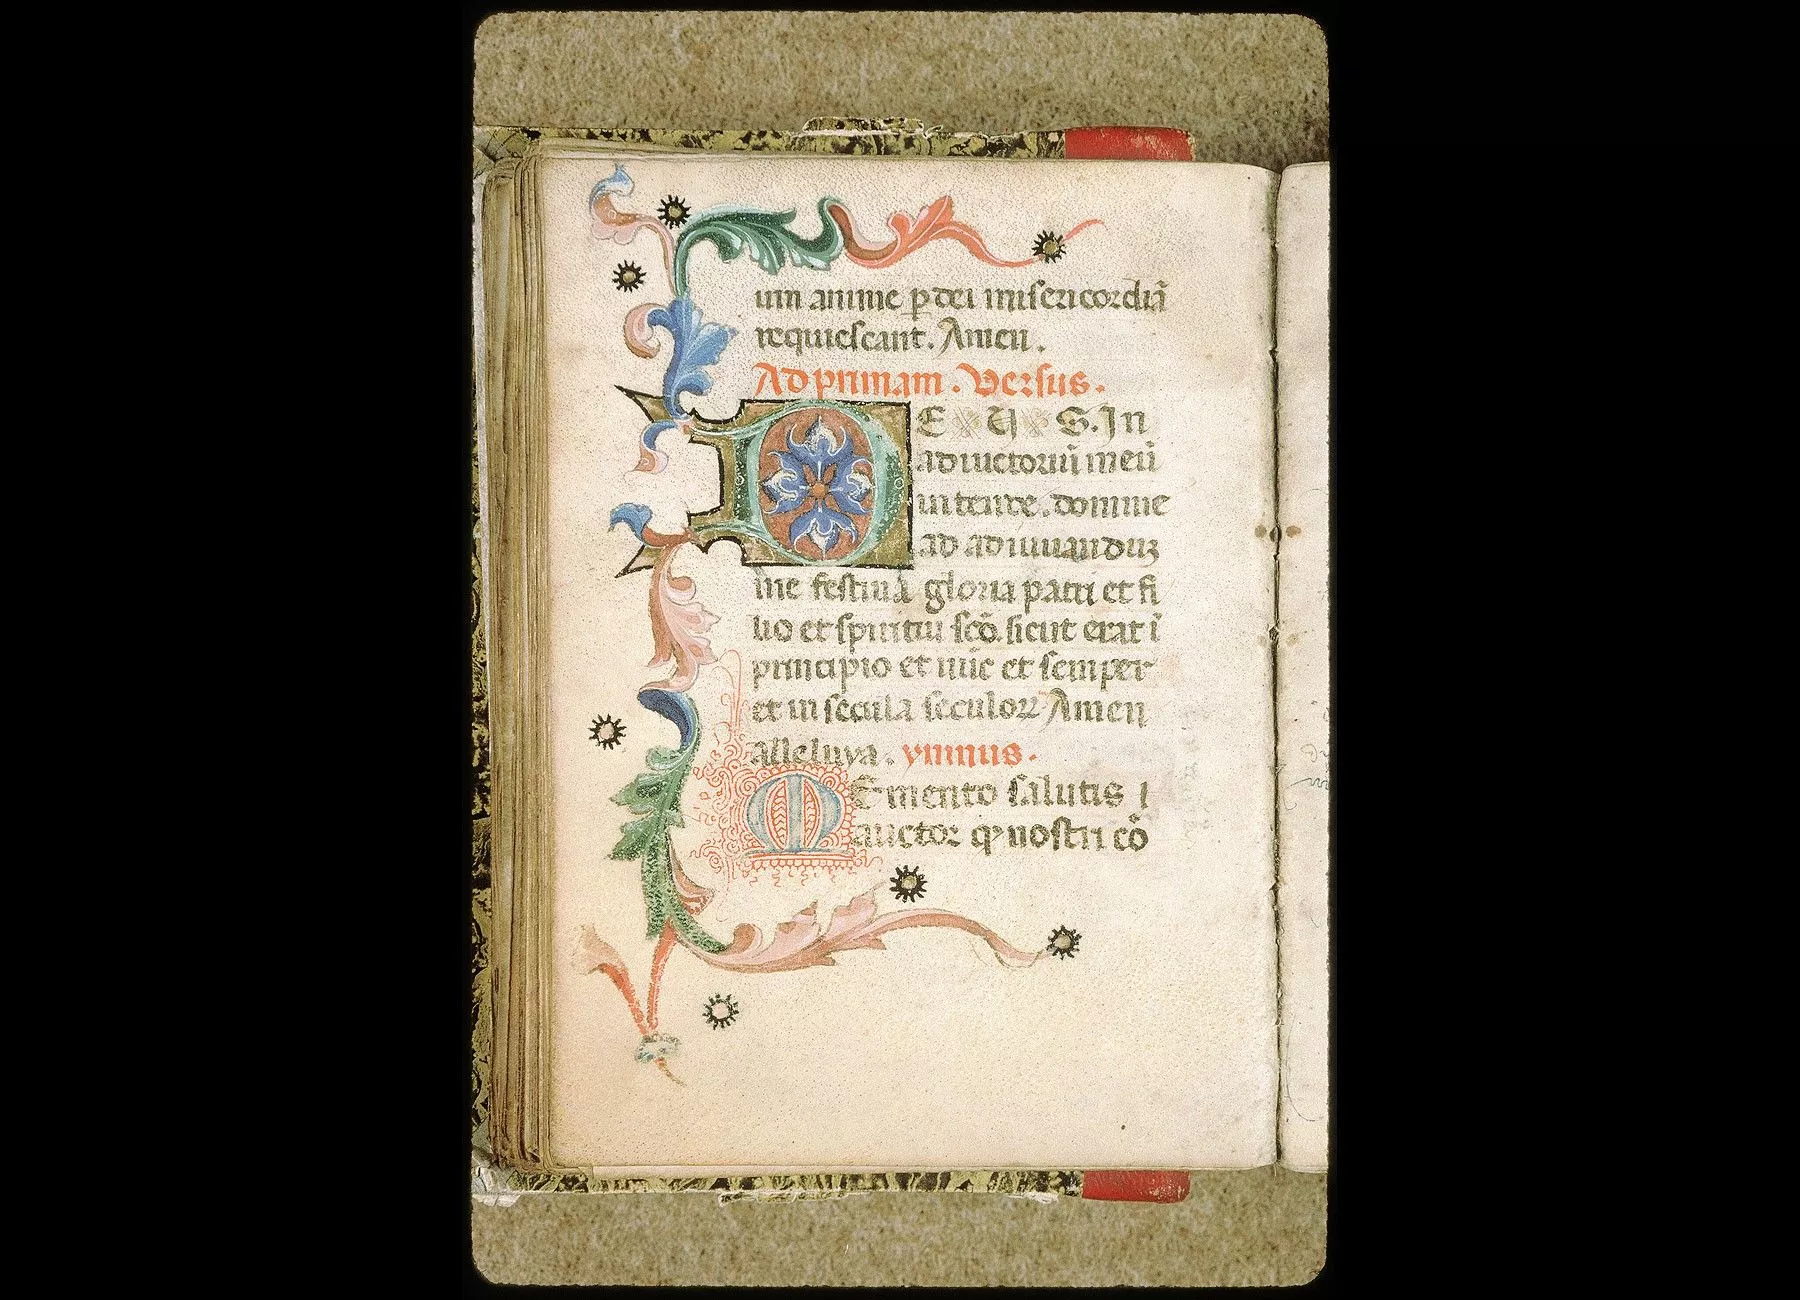 um anime p̱ dei misericordiā
requiescant. Amen.
Ad primam. Versus.
DEUS. In
adiutoriū meū
intende. domine
ad adiuuanduz
me festina gloria patri et fi
lio et spiritui scō. sicut erat ī
principio et nūc et semper
et in secula seculoꝝ Amen
alleluya. ymnus.
Memento salutis
auctor ꝙ nostri cō